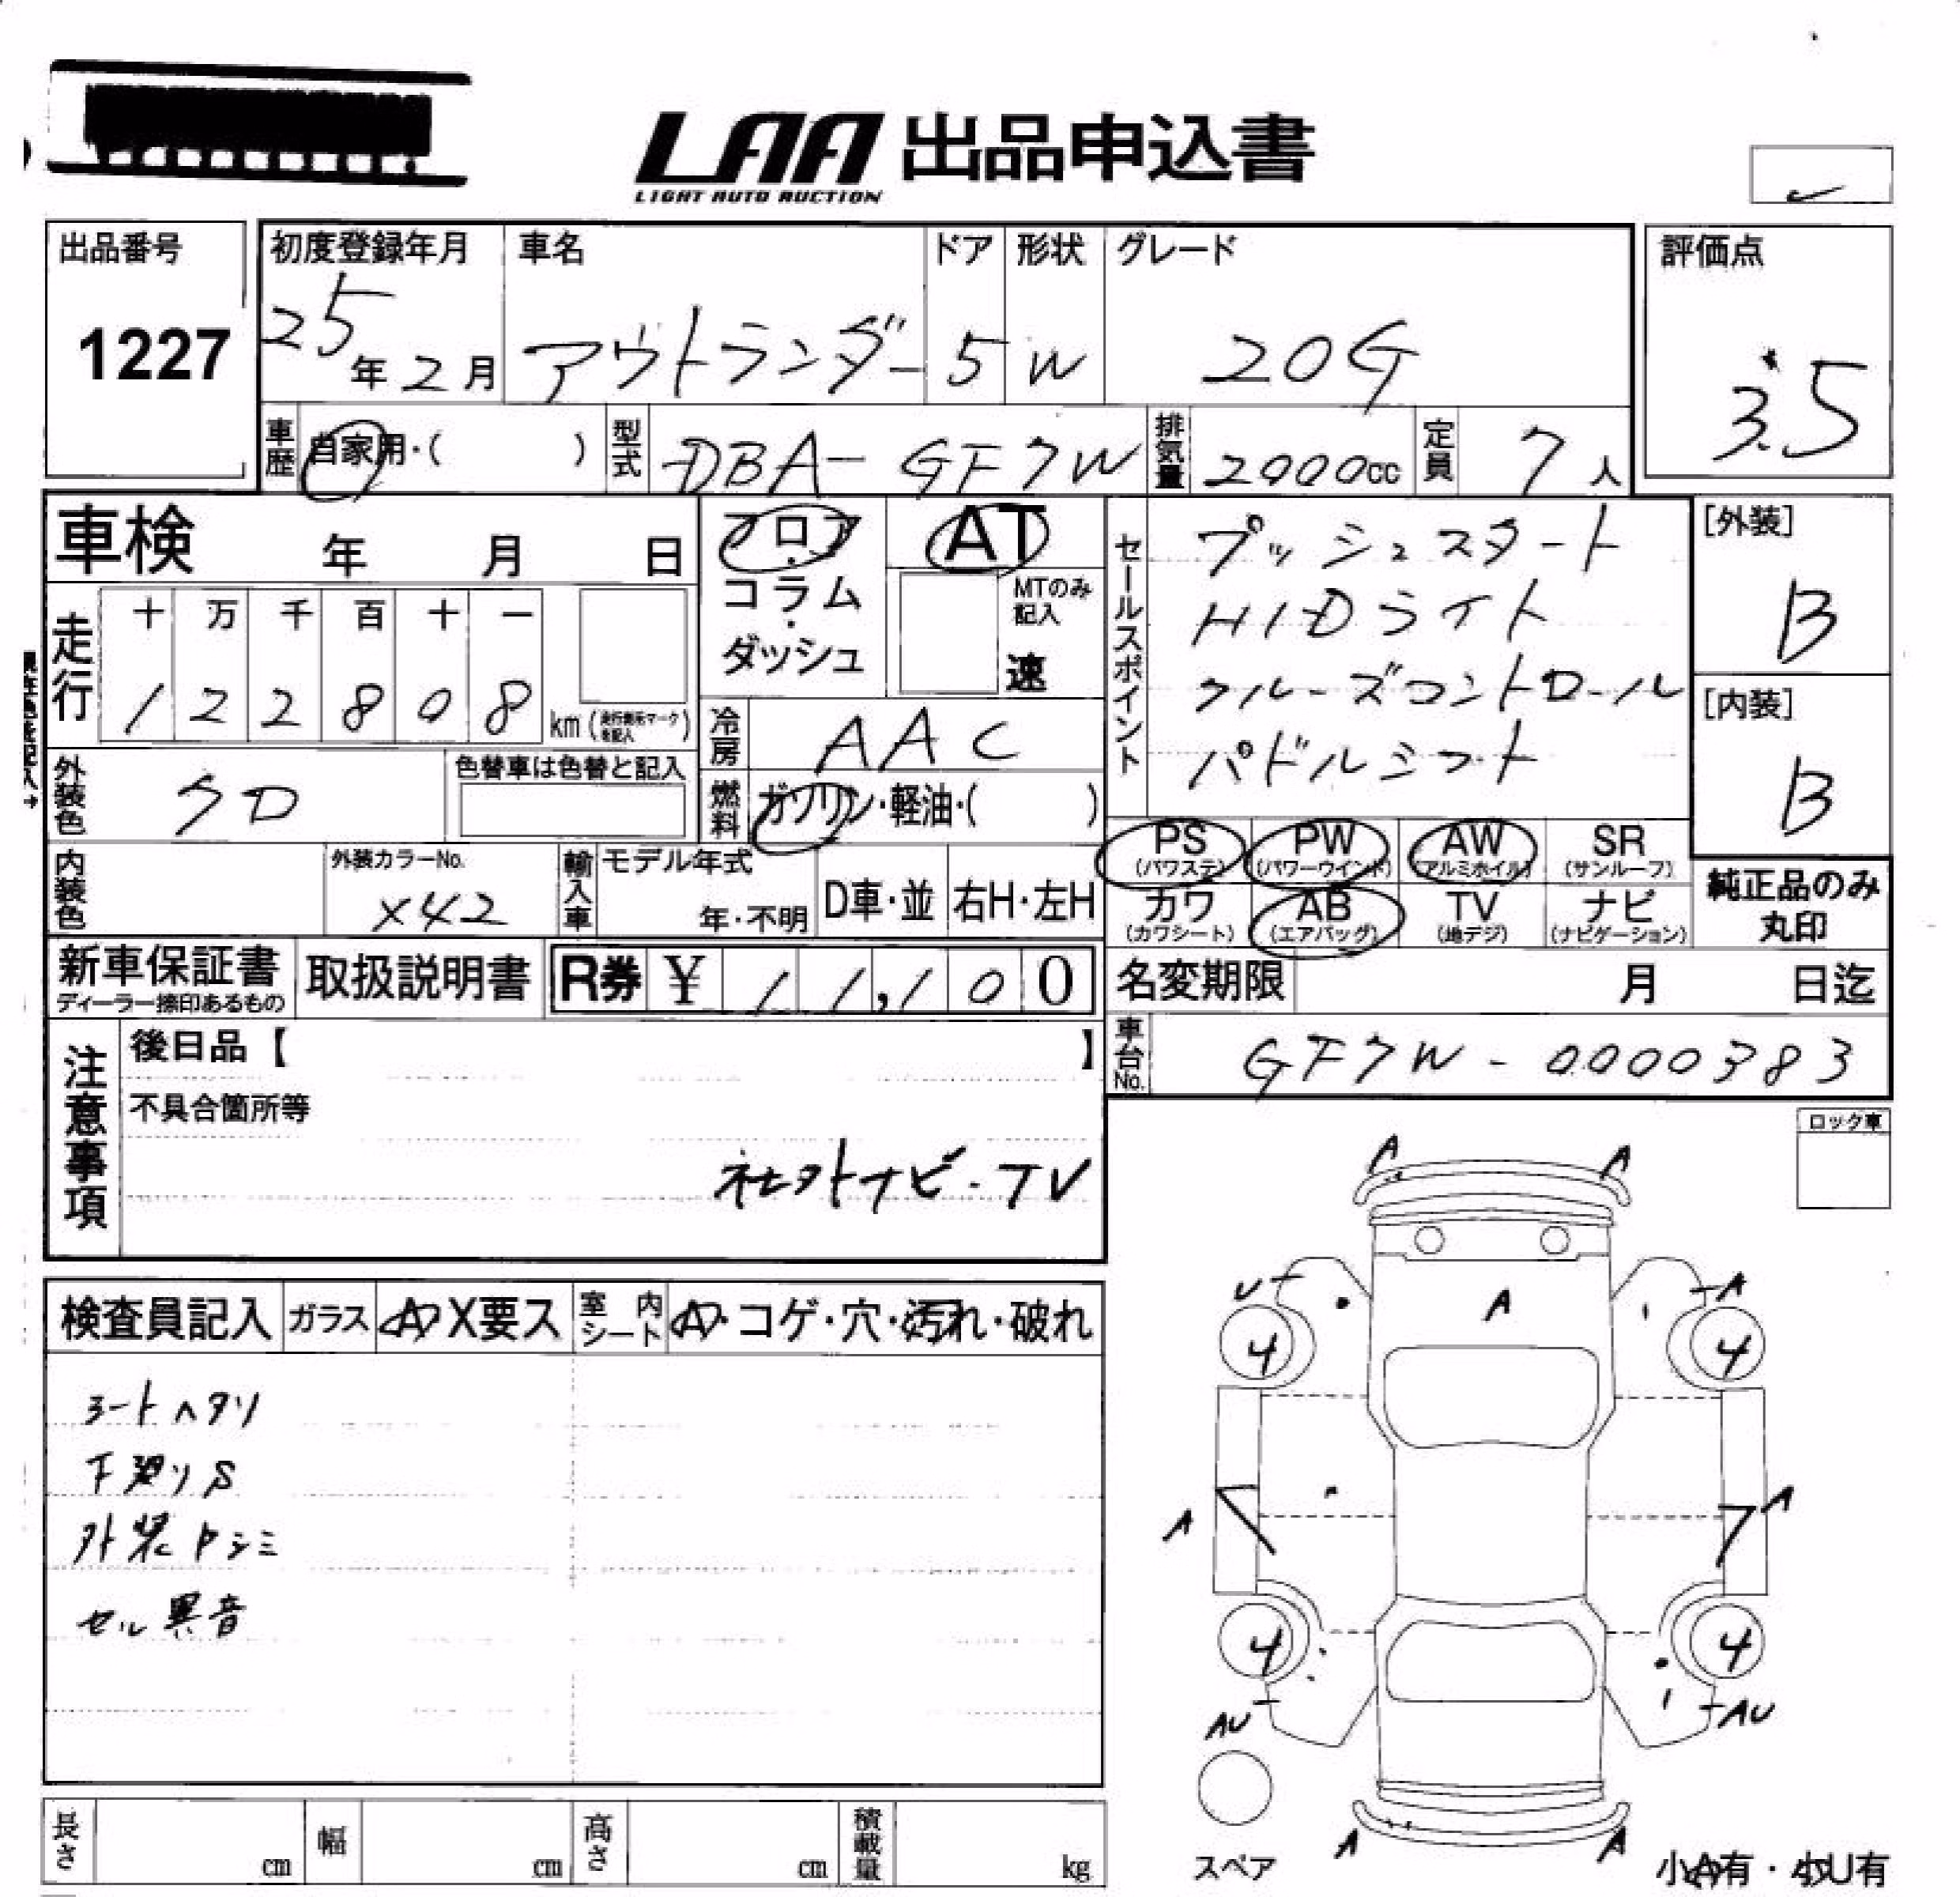 LAA 出品申込書
LIGHT AUTO AUCTION
出品番号
1227
初度登録年月
25年2月
車名
アウトランダー
ドア
5
形状
W
グレード
20G
評価点
3.5
車歴
自家用・( )
型式
DBA-GF7W
排気量
2000cc
定員
7人
車検 年 月 日
走行
十 万 千 百 十 一
1 2 2 8 0 8 km
フロア・コラム・ダッシュ
AT
MTのみ記入
速
冷房
AAC
燃料
ガソリン・軽油・( )
セールスポイント
プッシュスタート
HIDライト
クルーズコントロール
パドルシフト
[外装]
B
[内装]
B
外装色
クロ
色替車は色替と記入
内装色
外装カラーNo.
X42
輸入車
モデル年式
年・不明
D車・並
右H・左H
PS
(パワステ)
PW
(パワーウインド)
AW
(アルミホイル)
SR
(サンルーフ)
カワ
(カワシート)
AB
(エアバッグ)
TV
(地デジ)
ナビ
(ナビゲーション)
純正品のみ
丸印
新車保証書
ディーラー捺印あるもの
取扱説明書
R券 ¥ 11,100
名変期限 月 日迄
車台No.
GF7W-0000383
注意事項
後日品【 】
不具合箇所等
社外ナビ・TV
ロック車
検査員記入
ガラス
A X要ス
室内シート
A・コゲ・穴・汚れ・破れ
シートヘタリ
下廻りS
外装キズシミ
セル異音
A A
U A
A
4 4
A A
4 4
AU AU
A A
スペア
小A有・小U有
長さ cm
幅 cm
高さ cm
積載量 kg